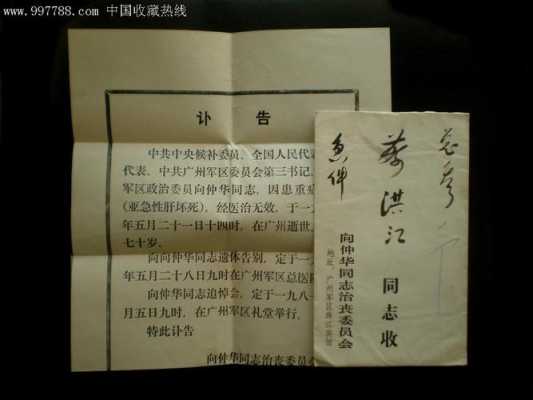 www.997788.com 中国收藏热线
讣告
中共中央候补委员、全国人民代表
代表、中共广州军区委员会第三书记、
军区政治委员向仲华同志，因患重症
(亚急性肝坏死)，经医治无效，于一
年五月二十一日十四时，在广州逝世，
七十岁。
向向仲华同志遗体告别，定于一
年五月二十八日九时在广州军区总医院
向仲华同志追悼会，定于一九八一
月五日九时，在广州军区礼堂举行。
特此讣告
向仲华同志治丧委员会
洪江 同志收
向仲华同志治丧委员会
地址：广州军区珠江宾馆